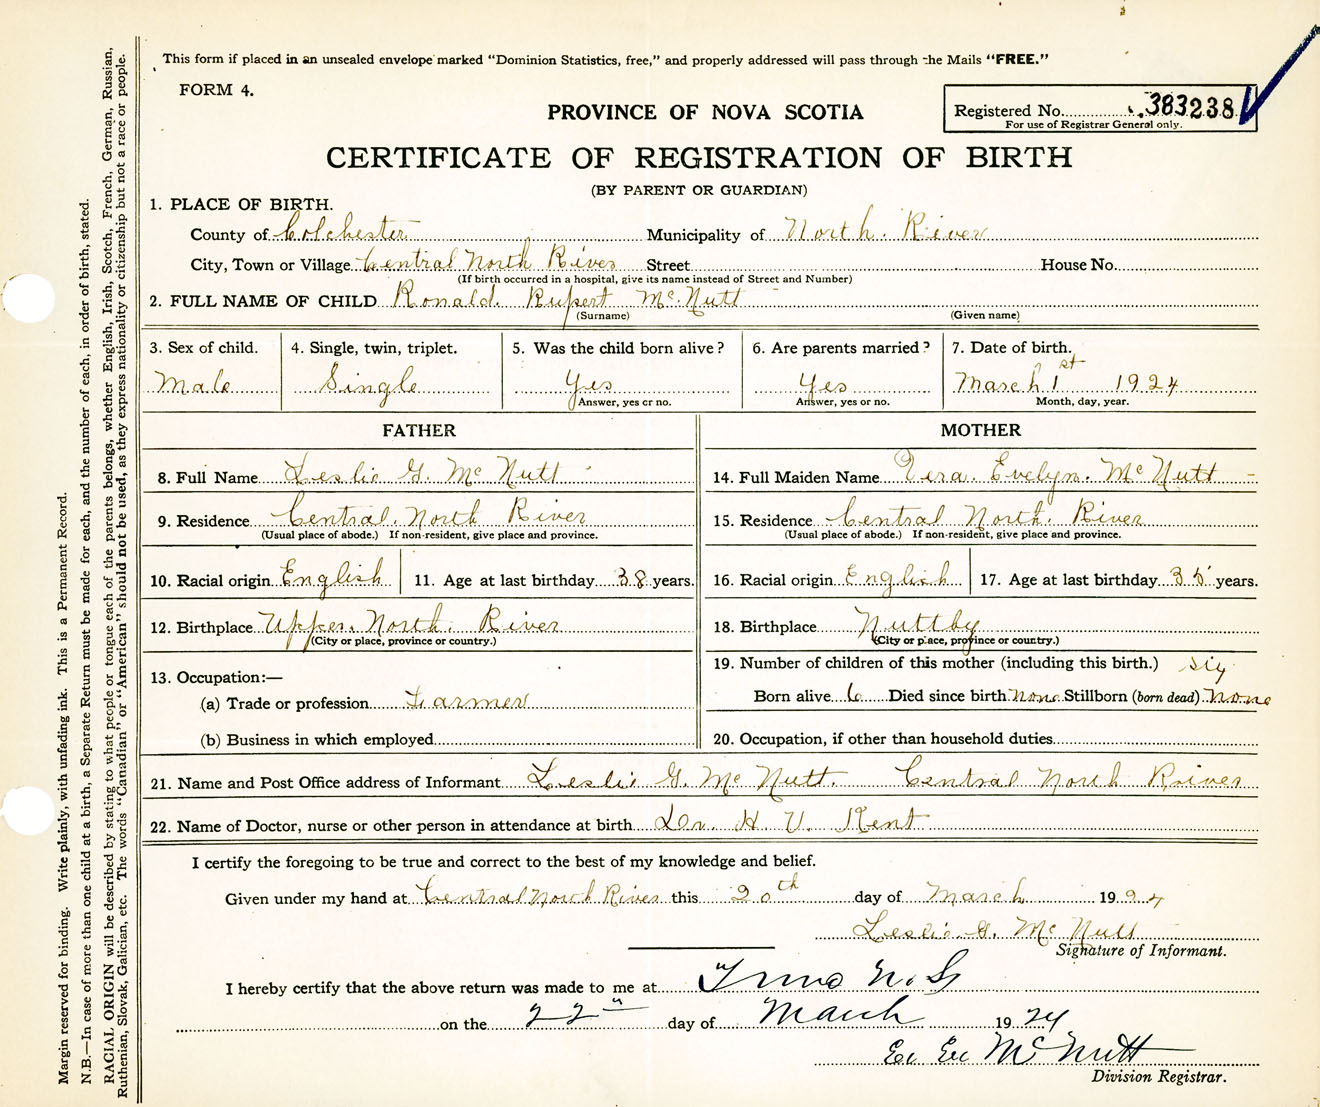 This form if placed in an unsealed envelope marked "Dominion Statistics, free," and properly addressed will pass through the Mails "FREE."
FORM 4.
PROVINCE OF NOVA SCOTIA
Registered No. 383238
For use of Registrar General only.
CERTIFICATE OF REGISTRATION OF BIRTH
(BY PARENT OR GUARDIAN)
1. PLACE OF BIRTH.
County of Colchester Municipality of North River
City, Town or Village Central North River Street House No.
(If birth occurred in a hospital, give its name instead of Street and Number)
2. FULL NAME OF CHILD Ronald Rupert McNutt
(Surname) (Given name)
3. Sex of child. 4. Single, twin, triplet. 5. Was the child born alive? 6. Are parents married? 7. Date of birth.
Male Single Yes Yes March 1st 1924
Answer, yes or no. Answer, yes or no. Month, day, year.
FATHER MOTHER
8. Full Name Leslie G. McNutt 14. Full Maiden Name Vera Evelyn McNutt
9. Residence Central North River 15. Residence Central North River
(Usual place of abode.) If non-resident, give place and province. (Usual place of abode.) If non-resident, give place and province.
10. Racial origin English 11. Age at last birthday 38 years. 16. Racial origin English 17. Age at last birthday 35 years.
12. Birthplace Upper North River 18. Birthplace Nuttby
(City or place, province or country.) (City or place, province or country.)
13. Occupation:— 19. Number of children of this mother (including this birth.) six
(a) Trade or profession Farmer Born alive 6 Died since birth none Stillborn (born dead) none
(b) Business in which employed 20. Occupation, if other than household duties
21. Name and Post Office address of Informant Leslie G. McNutt. Central North River
22. Name of Doctor, nurse or other person in attendance at birth Dr. H. V. Kent
I certify the foregoing to be true and correct to the best of my knowledge and belief.
Given under my hand at Central North River this 20th day of March 1924
Leslie G. McNutt
Signature of Informant.
I hereby certify that the above return was made to me at Truro N.S
on the 22" day of March 1924
McNutt
Division Registrar.
Margin reserved for binding. Write plainly, with unfading ink. This is a Permanent Record.
N.B.—In case of more than one child at a birth, a Separate Return must be made for each, and the number of each, in order of birth, stated.
RACIAL ORIGIN will be described by stating to what people or tongue each of the parents belongs, whether English, Irish, Scotch, French, German, Russian,
Ruthenian, Slovak, Galician, etc. The words "Canadian" or "American" should not be used, as they express nationality or citizenship but not a race or people.